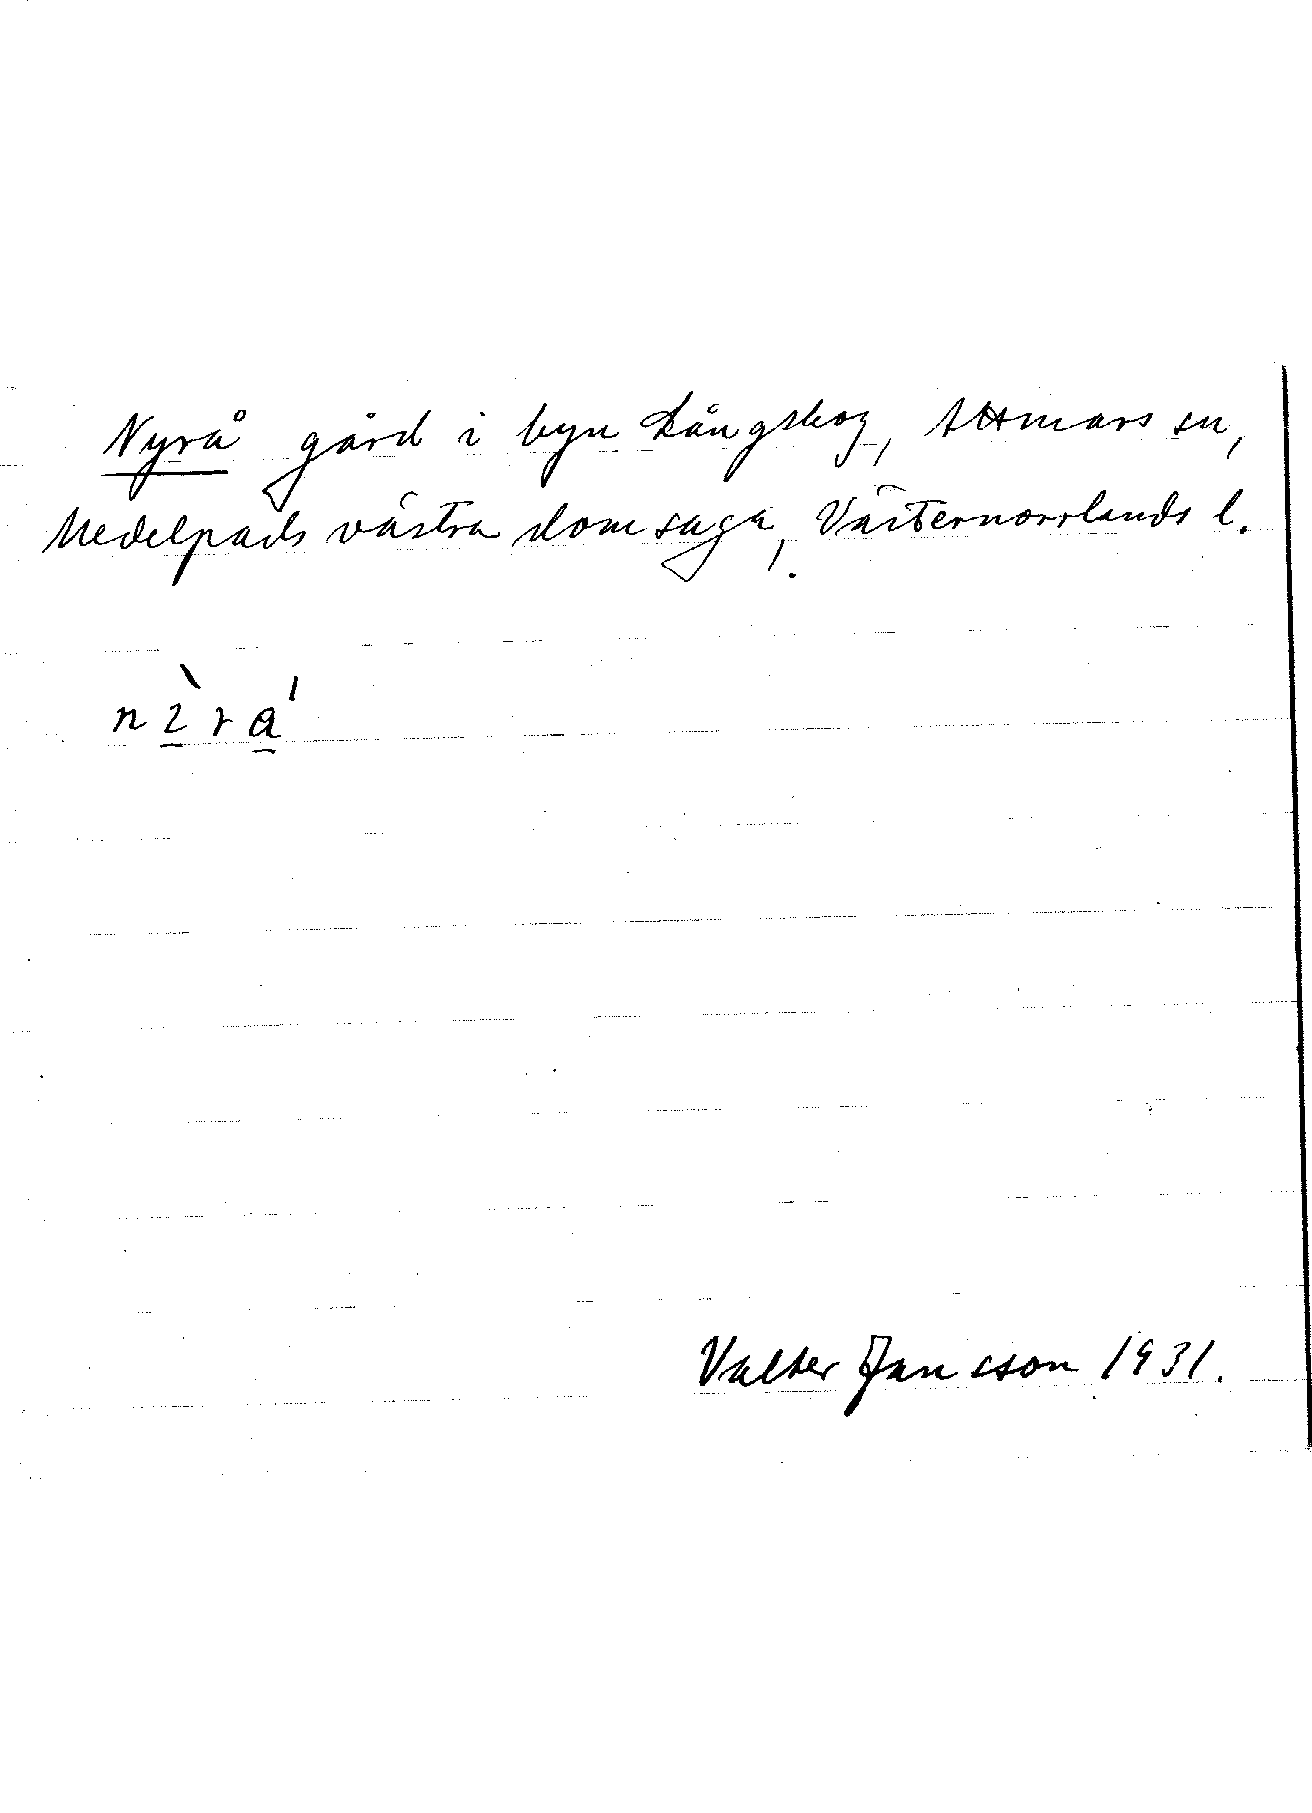 Nyrå gård i byn Långskog, Attmars sn,
Medelpads västra domsaga, Västernorrlands l.
Valter Jansson 1931.